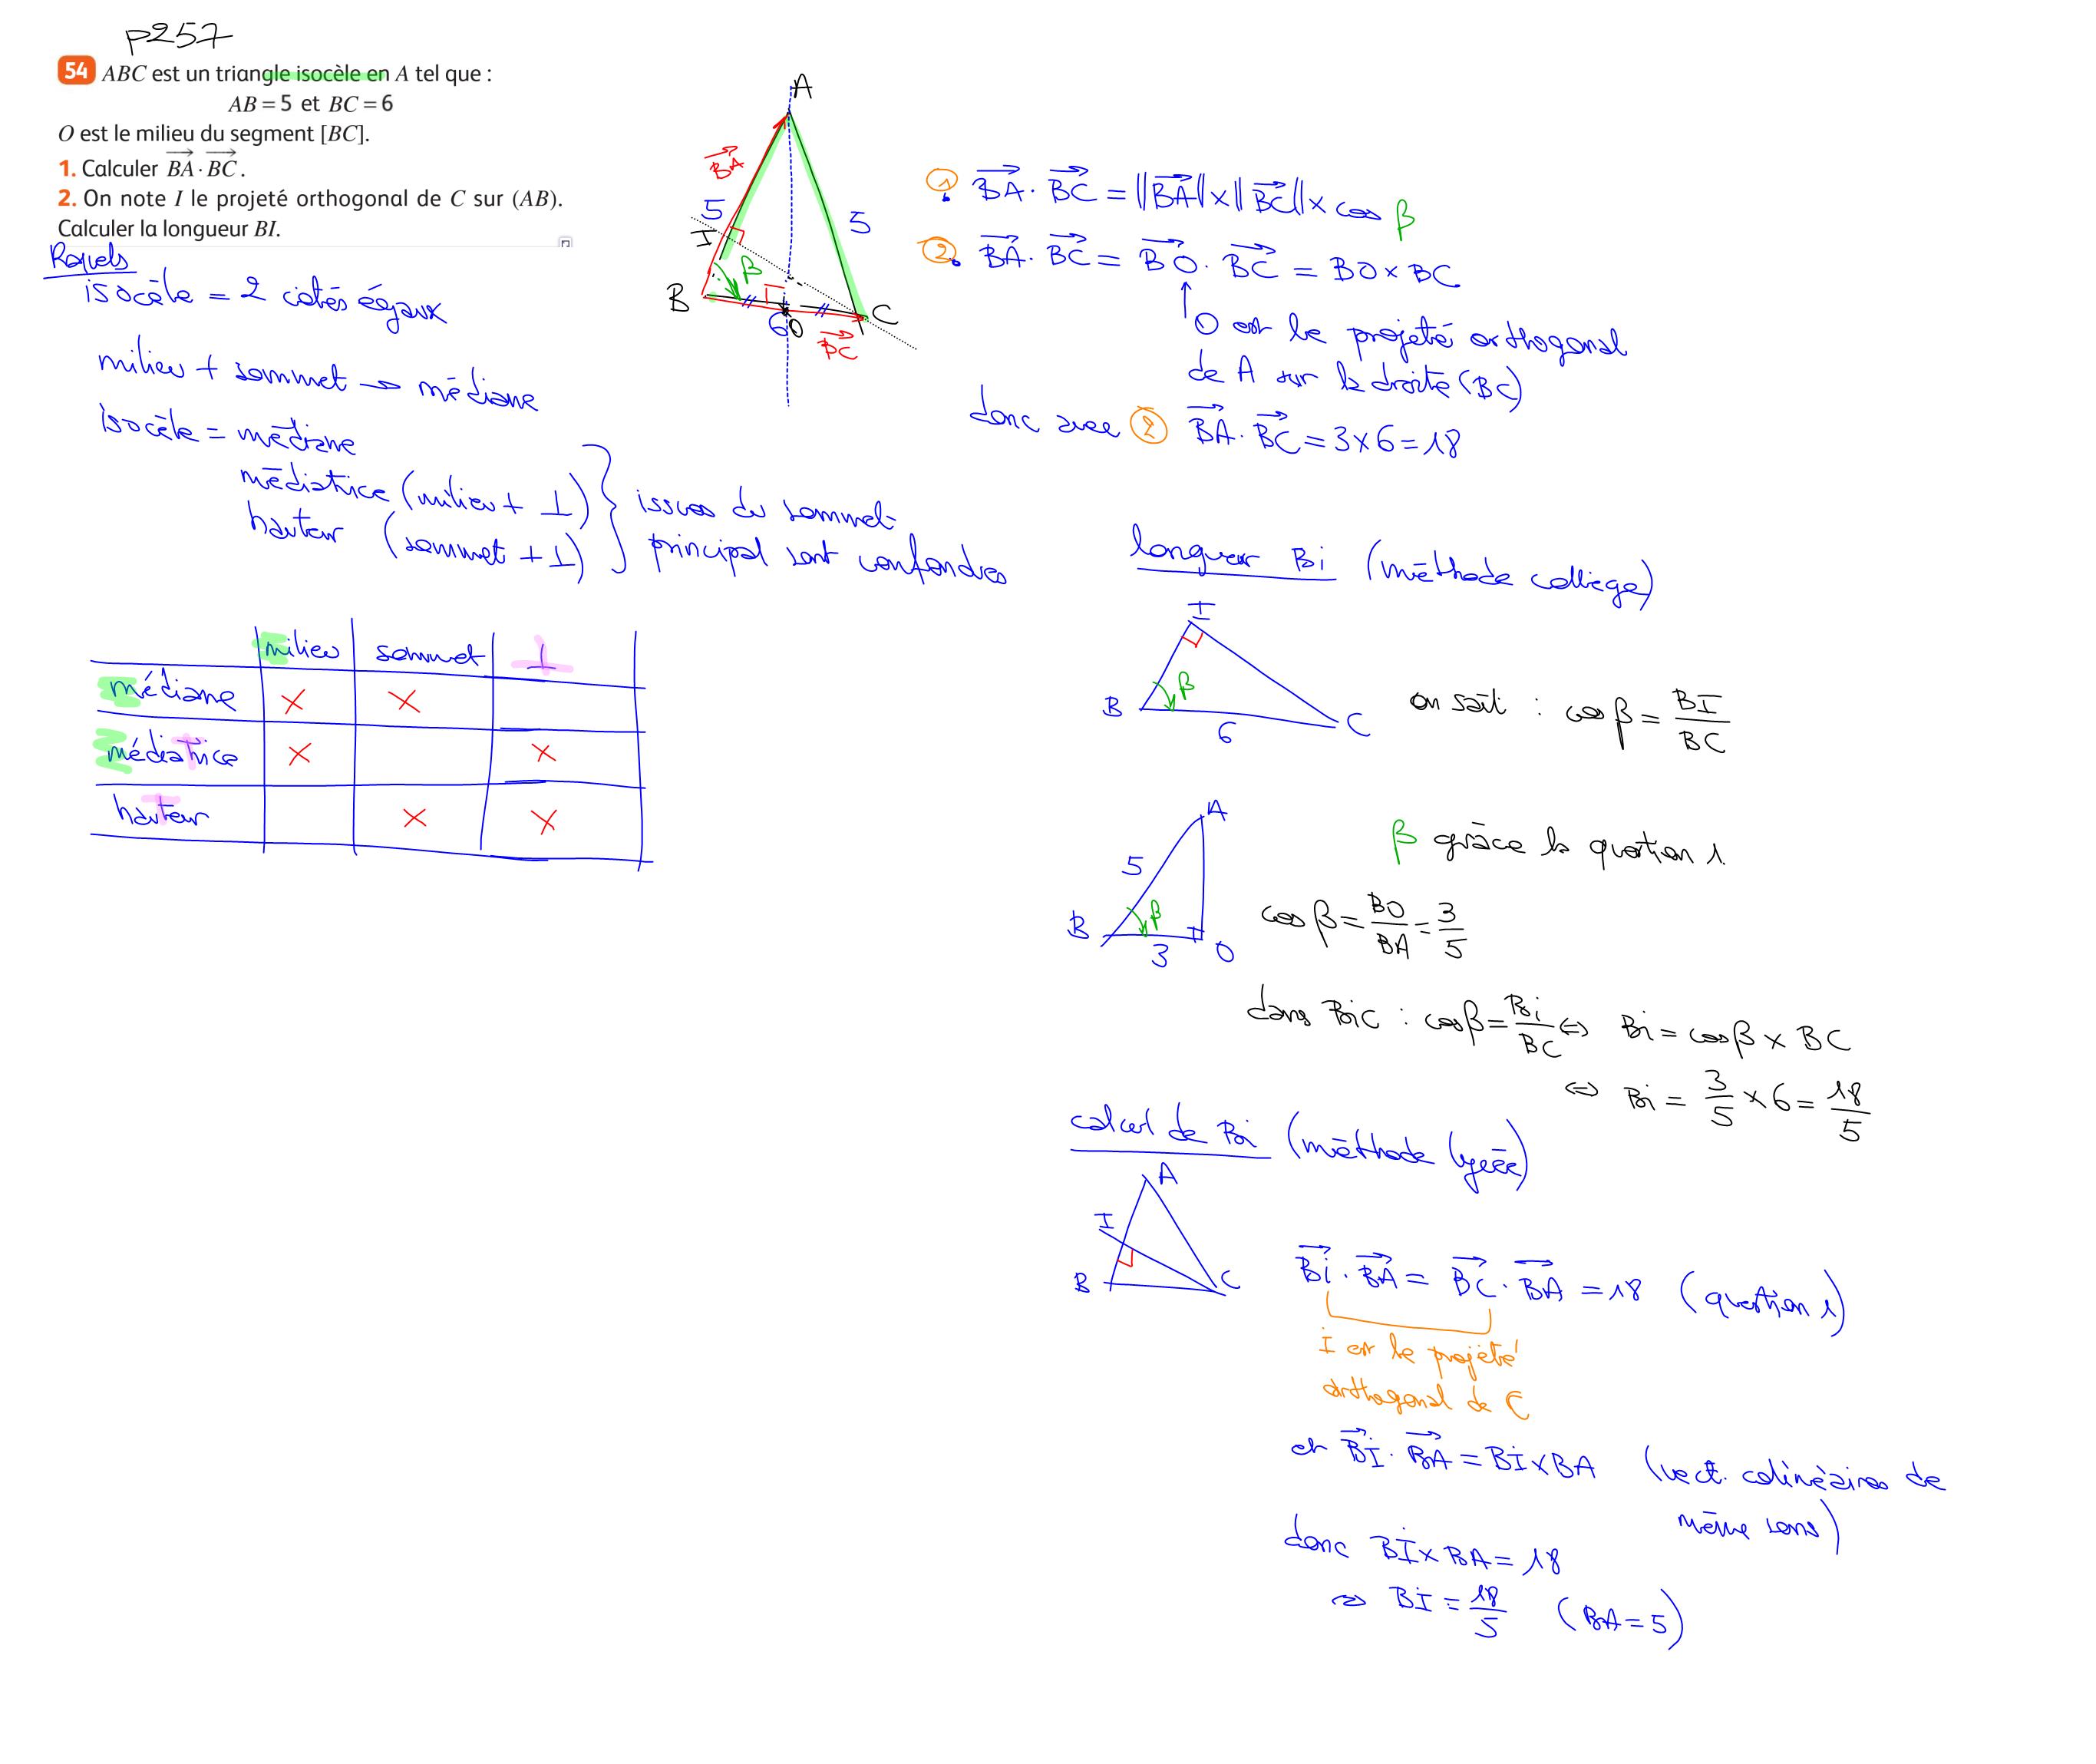 p257
54 ABC est un triangle isocèle en A tel que :
AB = 5 et BC = 6
O est le milieu du segment [BC].
1. Calculer BA · BC.
2. On note I le projeté orthogonal de C sur (AB).
Calculer la longueur BI.
Rappels
isocèle = 2 côtés égaux
milieu + sommet → médiane
isocèle = médiane
médiatrice (milieu + ⊥)
hauteur (sommet + ⊥)
issues du sommet
principal sont confondues
milieu sommet ⊥
médiane X X
médiatrice X X
hauteur X X
A
BA
5
5
I
β
B
6
O
C
BC
① BA · BC = ||BA|| × ||BC|| × cos β
② BA · BC = BO · BC = BO × BC
↑ O est le projeté orthogonal
de A sur la droite (BC)
donc avec ② BA · BC = 3 × 6 = 18
longueur Bi (méthode collège)
I
β
B
6
C
on sait : cos β = BI / BC
A
5
β
B
3
O
β grâce la question 1.
cos β = BO / BA = 3 / 5
dans BiC : cos β = Bi / BC ⇔ Bi = cos β × BC
⇔ Bi = 3/5 × 6 = 18/5
calcul de Bi (méthode lycée)
A
I
B
C
Bi · BA = BC · BA = 18 (question 1)
I est le projeté
orthogonal de C
et BI · BA = BI × BA (vect. colinéaires de
même sens)
donc BI × BA = 18
⇔ BI = 18/5 (BA = 5)